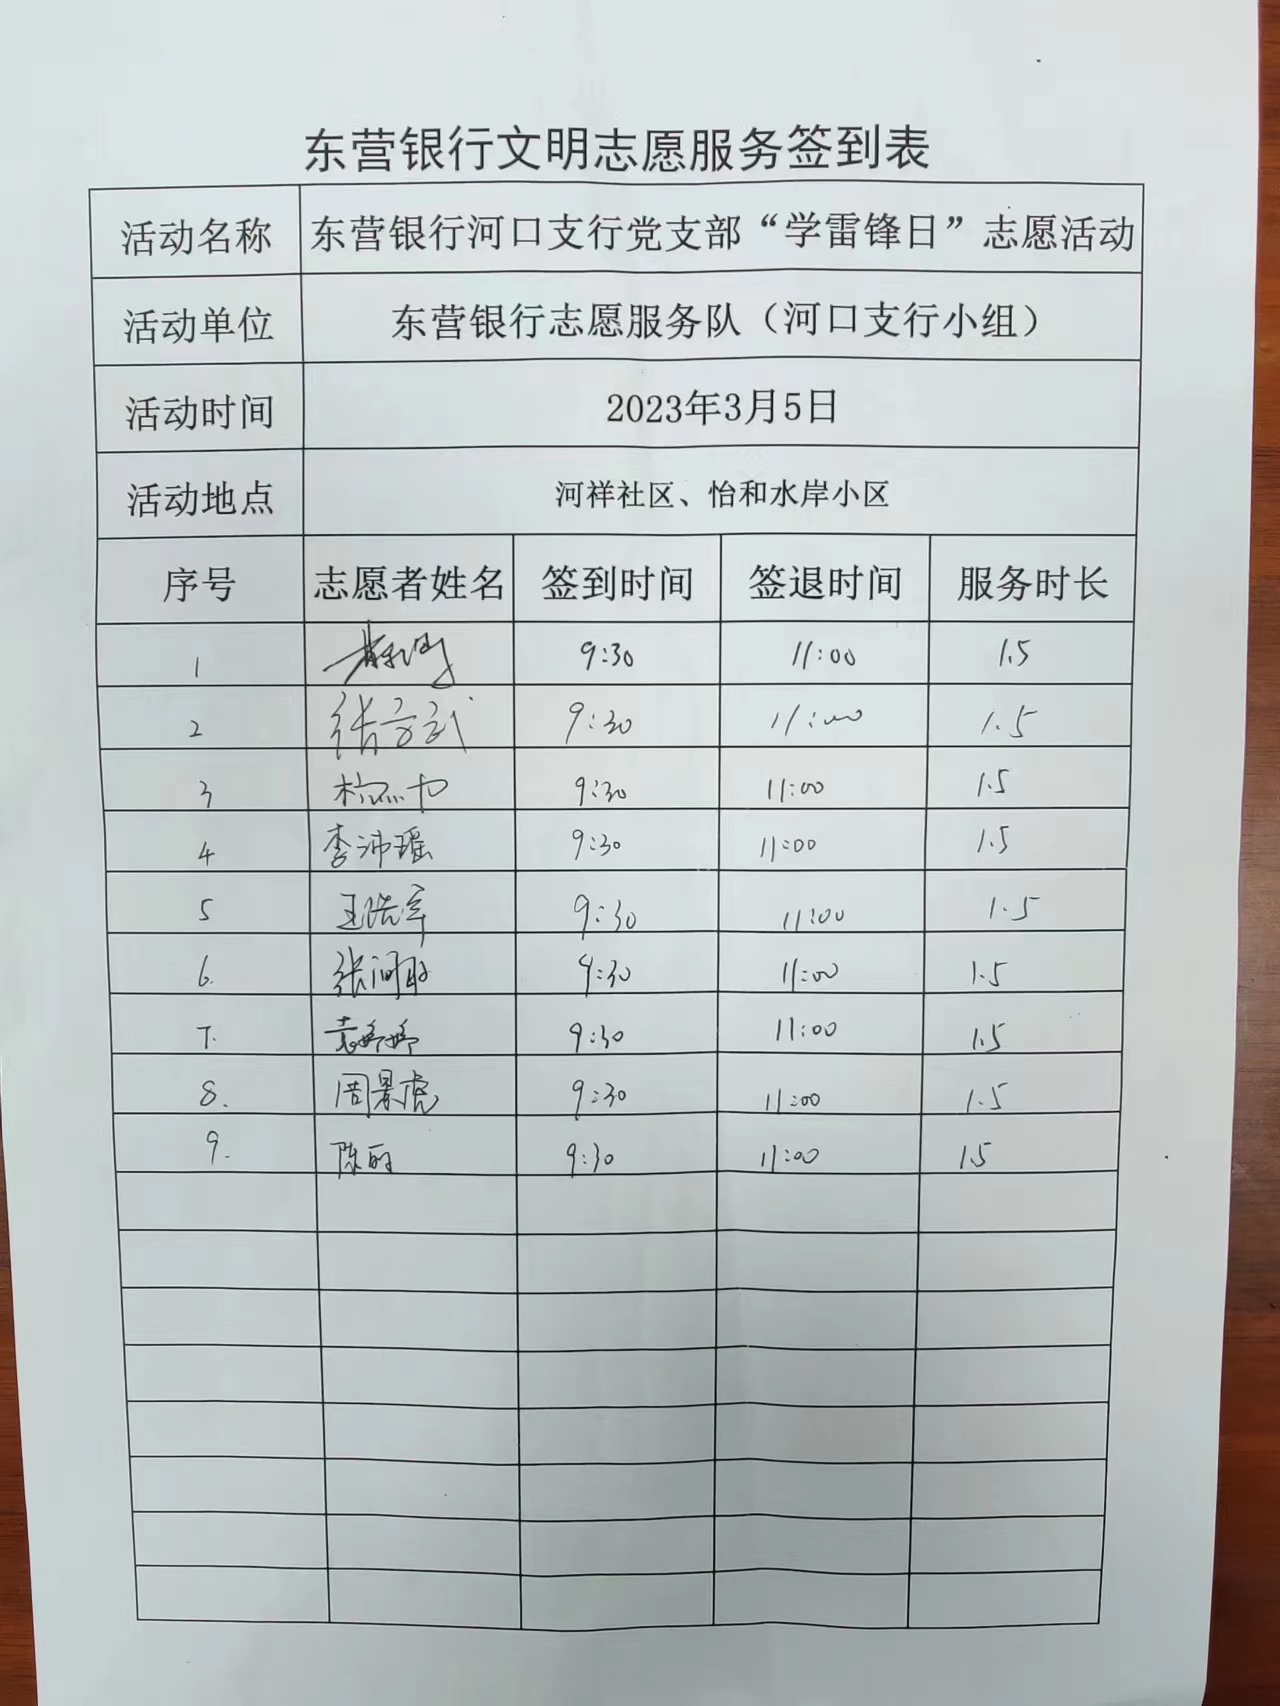 东营银行文明志愿服务签到表
活动名称 东营银行河口支行党支部“学雷锋日”志愿活动
活动单位 东营银行志愿服务队（河口支行小组）
活动时间 2023年3月5日
活动地点 河祥社区、怡和水岸小区
序号 志愿者姓名 签到时间 签退时间 服务时长
1 9:30 11:00 1.5
2 张方武 9:30 11:00 1.5
3 9:30 11:00 1.5
4 李沛瑶 9:30 11:00 1.5
5 王浩军 9:30 11:00 1.5
6. 张 9:30 11:00 1.5
7. 袁婷婷 9:30 11:00 1.5
8. 周景虎 9:30 11:00 1.5
9. 陈丽 9:30 11:00 1.5